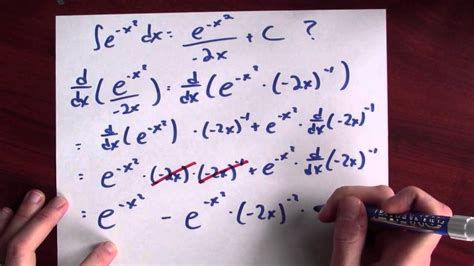 ∫e^{-x²} dx = e^{-x²}/-2x + C ?
d/dx (e^{-x²}/-2x) = d/dx (e^{-x²} · (-2x)^{-1})
= d/dx (e^{-x²}) · (-2x)^{-1} + e^{-x²} · d/dx (-2x)^{-1}
= e^{-x²} · (-2x) · (-2x)^{-1} + e^{-x²} · d/dx (-2x)^{-1}
= e^{-x²} - e^{-x²} · (-2x)^{-2} ·